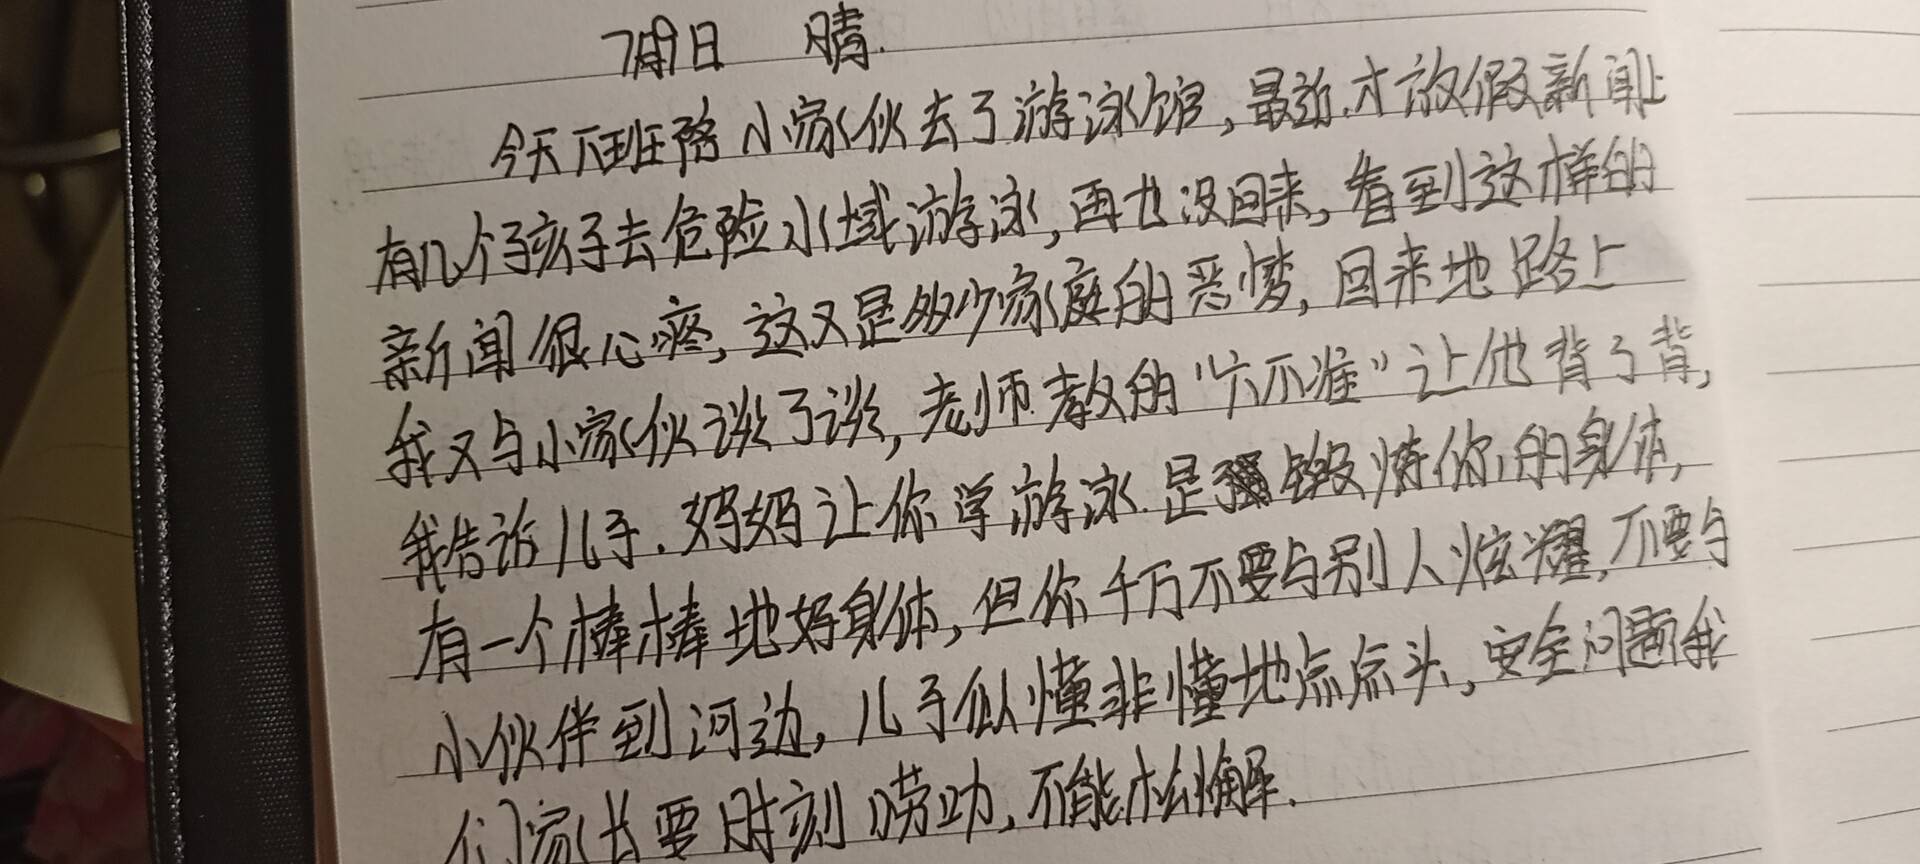 7月9日 晴.
今天下班陪小家伙去了游泳馆,最近.才放假新闻上
有几个孩子去危险水域游泳,再也没回来,看到这样的
新闻很心疼,这又是多少家庭的恶梦,回来地路上
我又与小家伙谈了谈,老师教的“六不准”让他背了背,
我告诉儿子.妈妈让你学游泳.是锻炼你的身体,
有一个棒棒地好身体,但你千万不要与别人炫耀,不要与
小伙伴到河边,儿子似懂非懂地点点头,安全问题我
们家长要时刻唠叨,不能松懈.